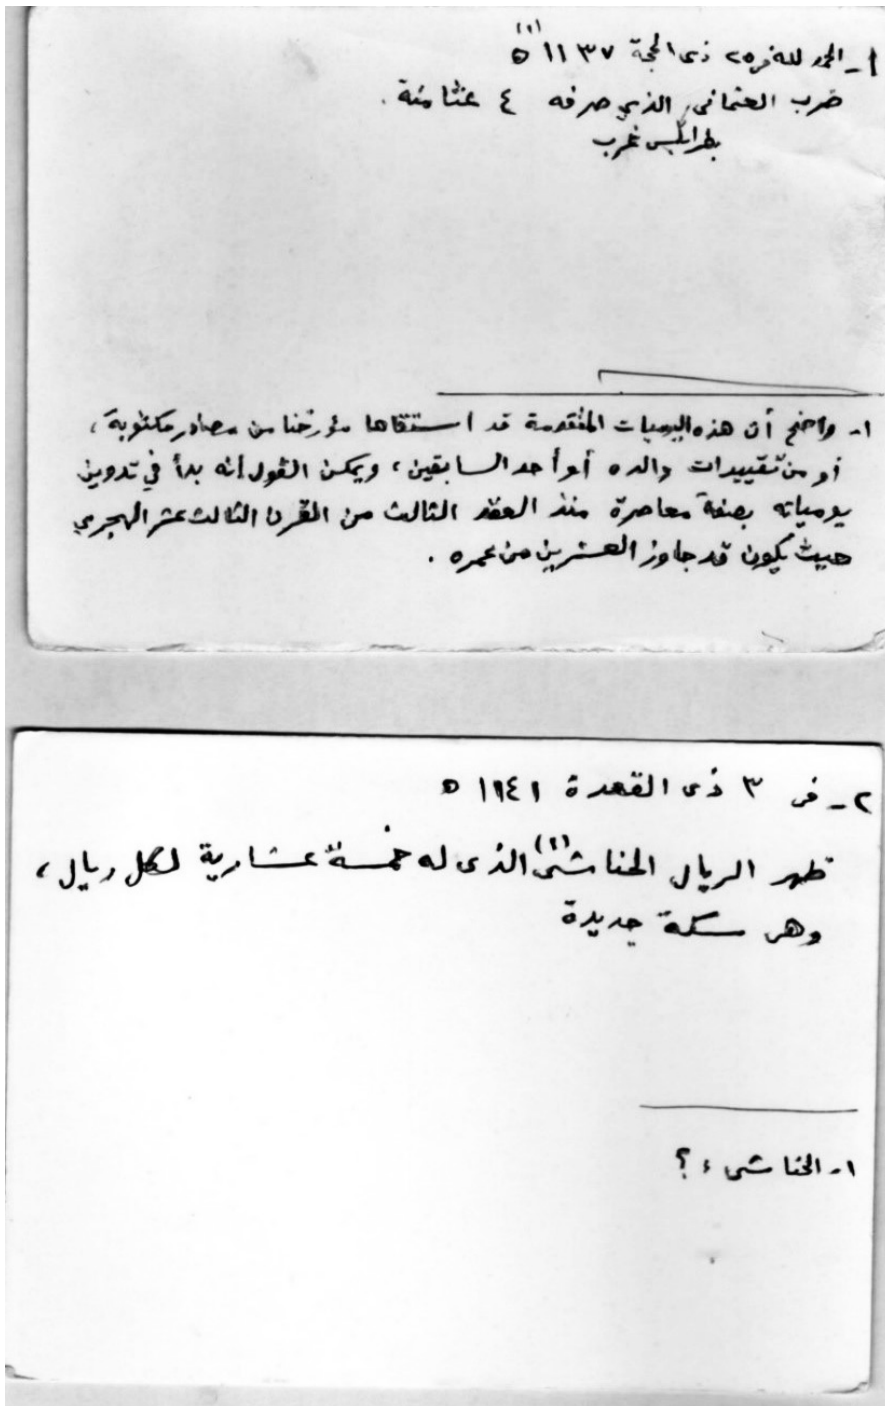 ١- الحمد لله في ٢٥ ذي الحجة ١١٣٧ هـ (١)
ضرب العثماني الذي صرفه ٤ عثامنة .
بطرابلس غرب
١- واضح أن هذه اليوميات المتقدمة قد استقاها مؤرخنا من مصادر مكتوبة ،
أو من تقييدات والده أو أحد السابقين ، ويمكن القول أنه بدأ في تدوين
يومياته بصفة معاصرة منذ العقد الثالث من القرن الثالث عشر الهجري
حيث يكون قد جاوز العشرين من عمره .
٢- في ٣ ذي القعدة ١١٤١ هـ
ظهر الريال الحناشي (١) الذى له خمسة عشارية لكل ريال ،
وهي سكة جديدة
١- الحناشي : ؟